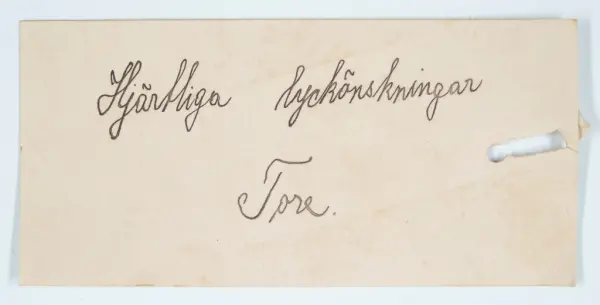 Hjärtliga lyckönskningar
Tore.